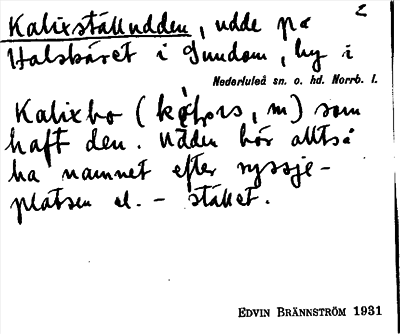 2
Kalixställudden, udde på
Halsbäret i Sundom, by i
Nederluleå sn. o. hd. Norrb. l.
Kalixbo ( , m) som
haft den. Udden bör alltså
ha namnet efter ryssje-
platsen el. - stället.
EDVIN BRÄNNSTRÖM 1931